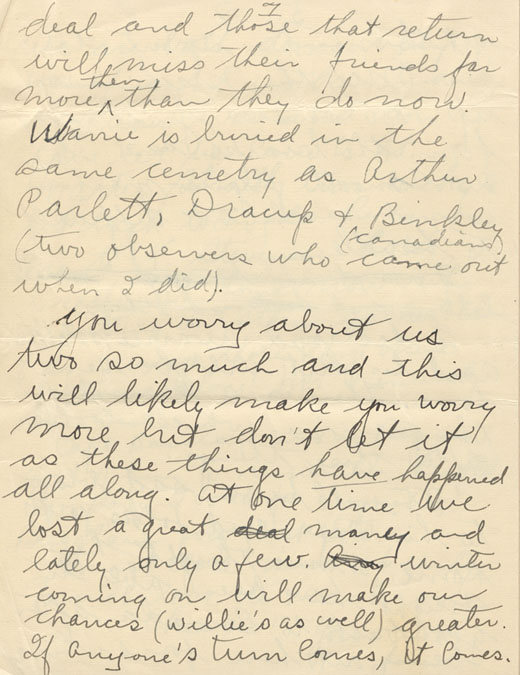 7
deal and those that return
will miss their friends far
more then than they do now.
Warrie is buried in the
same cemetry as Arthur
Parlett, Dracup & Binkley
(two observers who (canadians) came out
when I did).
you worry about us
two so much and this
will likely make you worry
more but don't let it
as these things have happened
all along. At one time we
lost a great deal many and
lately only a few. Any winter
coming on will make our
chances (Willie's as well) greater.
If anyone's turn comes, it comes.